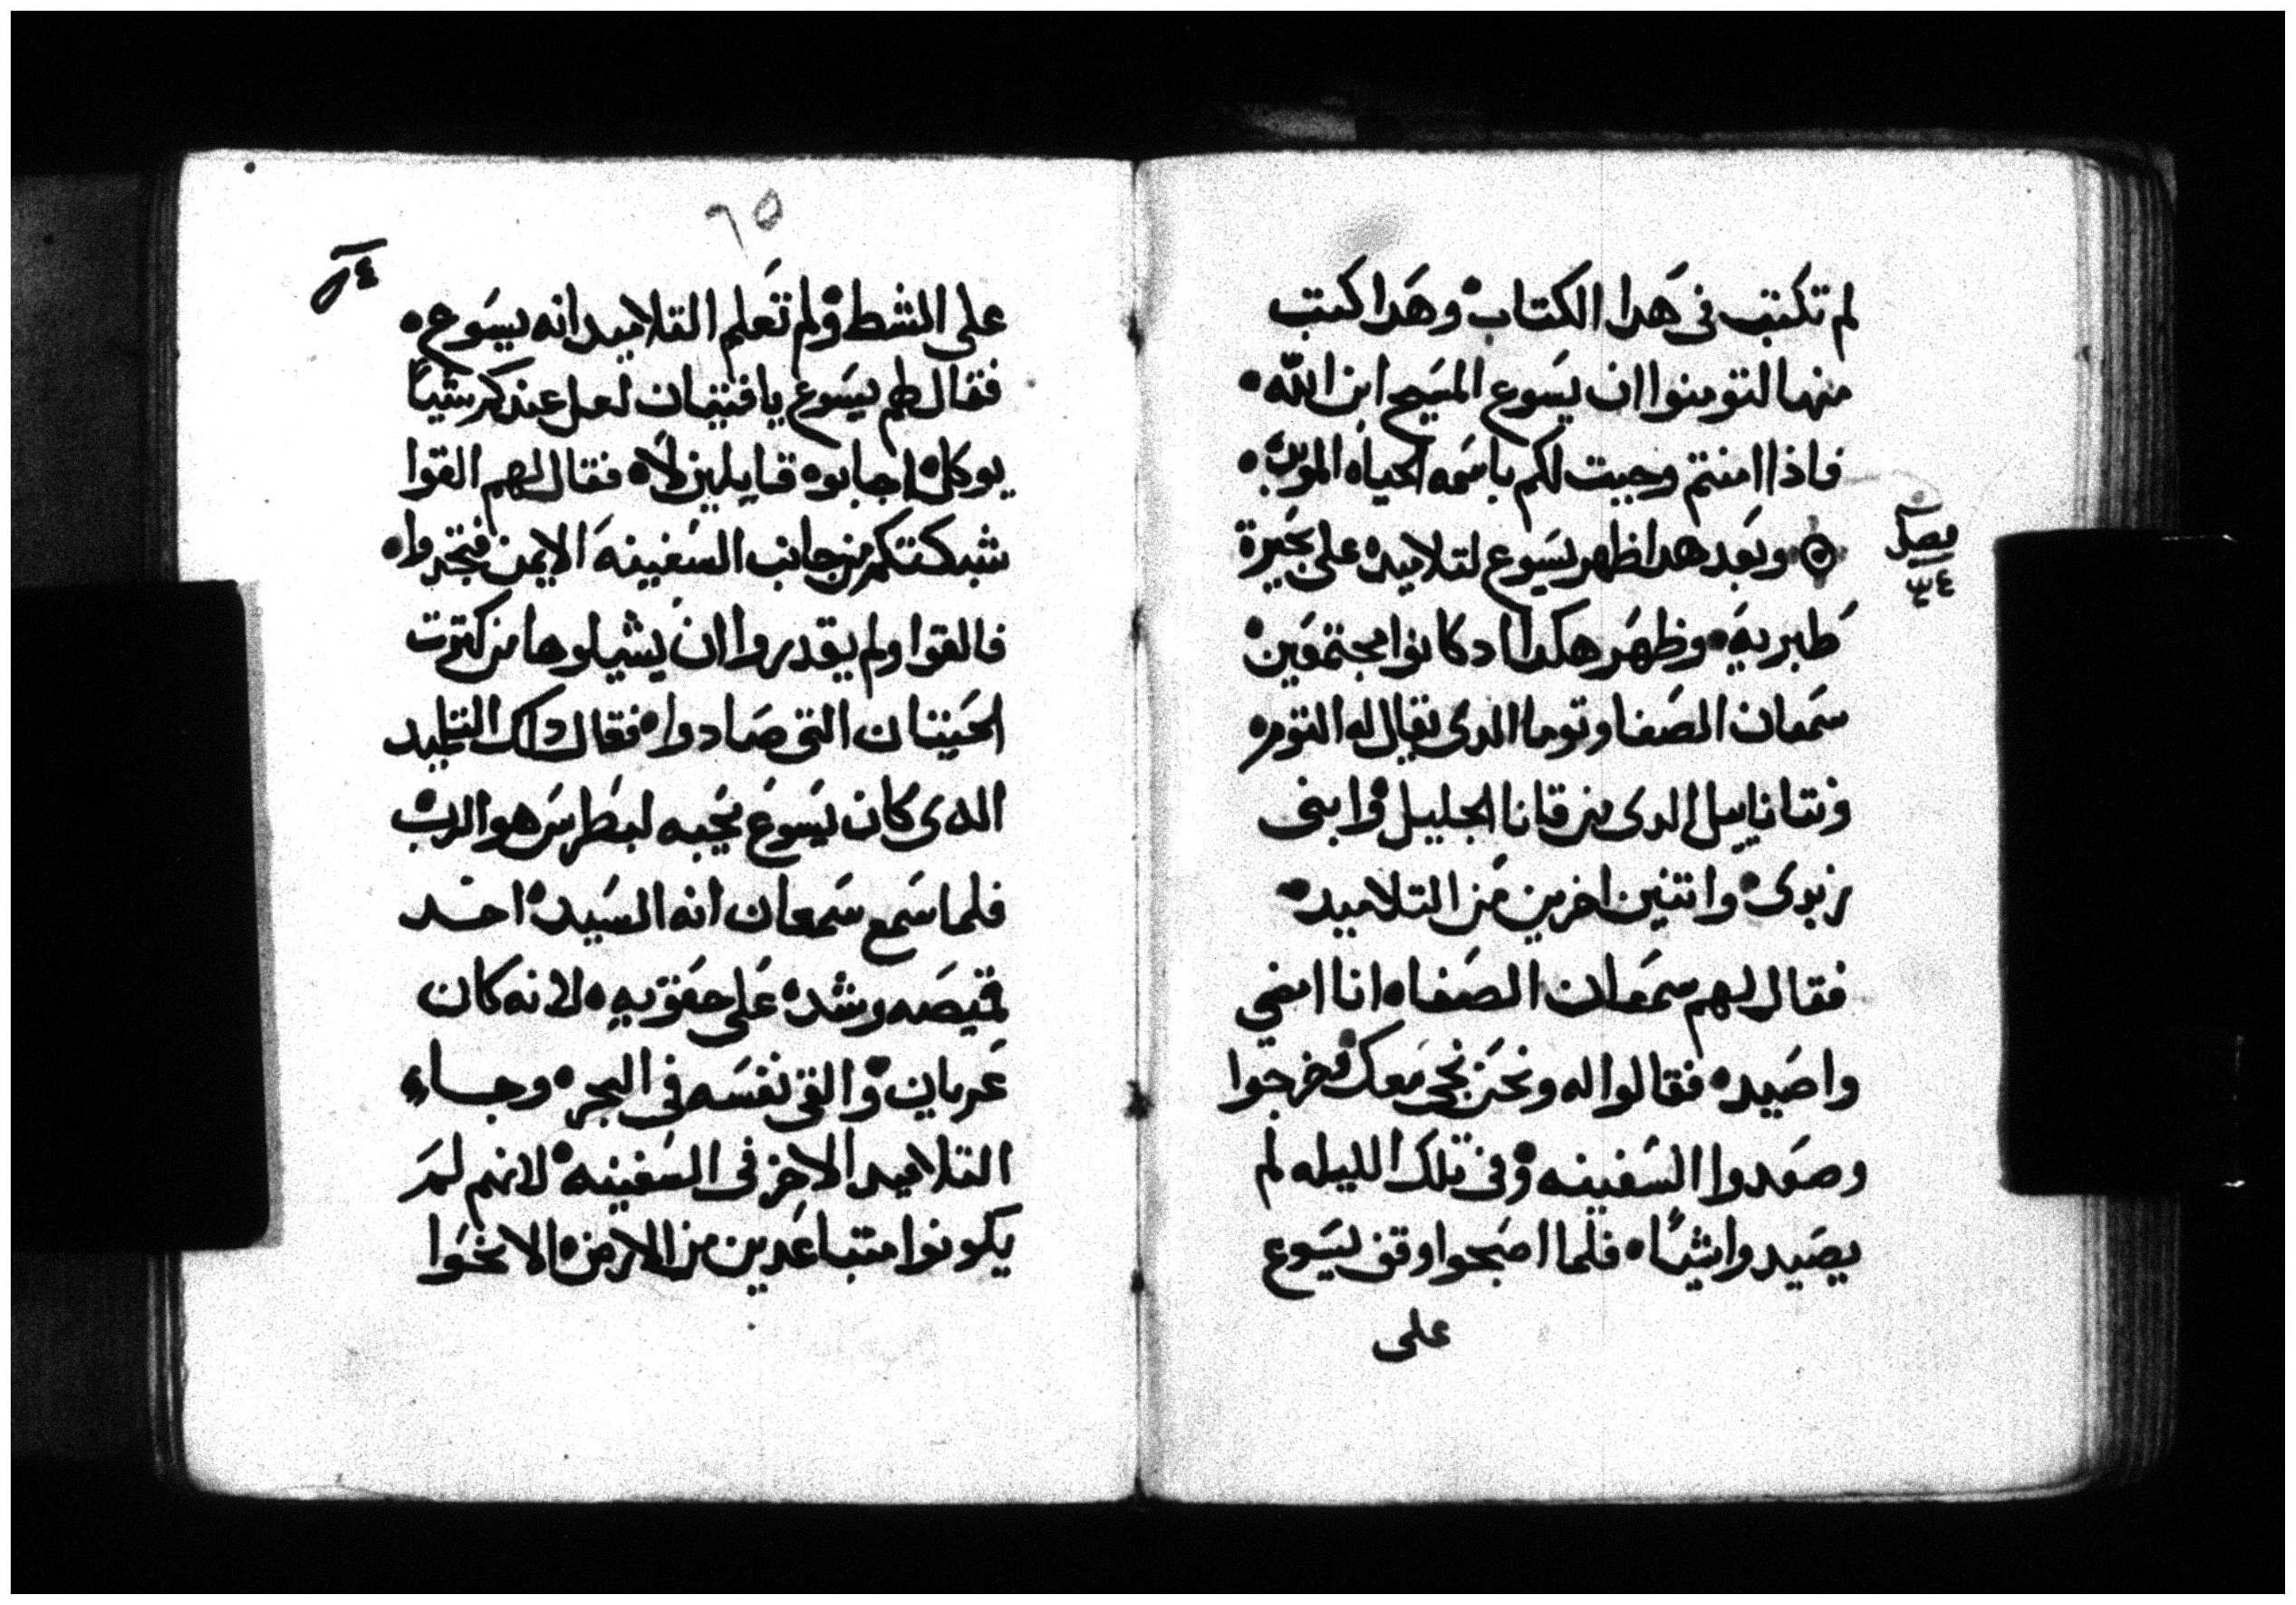 لم تكتب فى هدا الكتاب وهدا كتب
منها لتومنوا ان يسوع المسيح ابن الله
فاذا امنتم وجبت لكم باسمه الحياه
وبعد هدا ظهر يسوع لتلاميده على بحيرة
فصل
٣٤
طبريه وظهر هكدا اد كانوا مجتمعين
سمعان الصفا وتوما الدى يقال له التوم
ونتاناييل الدى من قانا الجليل وابنى
زبدى واتنين اخرين من التلاميد
فقال لهم سمعان الصفا انا امضي
واصيد فقالوا له ونحن نجى معك فخرجوا
وصعدوا السفينه وفى تلك الليله لم
يصيدوا شياً فلما اصبحوا وقف يسوع
على
٦٥
على الشط ولم تعلم التلاميد انه يسوع
فقال لهم يسوع يا فتيان لعل عندكم شياً
يوكل اجابوه قايلين لا فقال لهم القوا
شبكتكم من جانب السفينه الايمن فتجدوا
فالقوا ولم يقدروا ان يشيلوها من كترت
الحيتان التى صادوا فقال داك التلميد
الدى كان يسوع يحبه لبطرس هو الرب
فلما سمع سمعان انه السيد اخد
قميصه وشده على حقويه لانه كان
عريان والقى نفسه فى البحر وجاء
التلاميد الاخر فى السفينه لانهم لم
يكونوا متباعدين من الارض الا نحوا